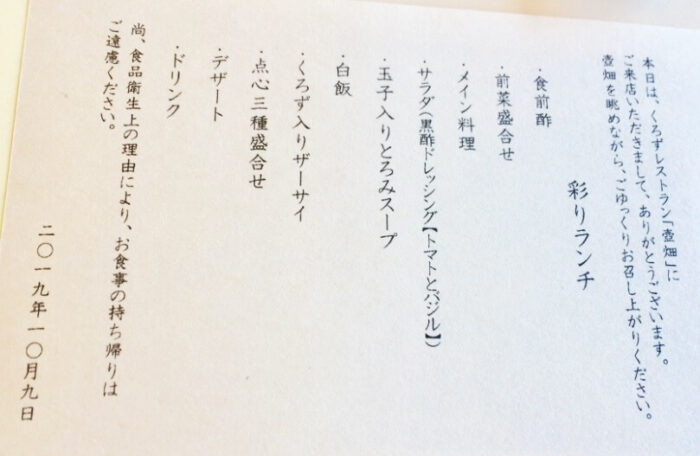 本日は、くろずレストラン「壺畑」に
ご来店いただきまして、ありがとうございます。
壺畑を眺めながら、ごゆっくりお召し上がりください。
彩りランチ
・食前酢
・前菜盛合せ
・メイン料理
・サラダ(黒酢ドレッシング【トマトとバジル】)
・玉子入りとろみスープ
・白飯
・くろず入りザーサイ
・点心三種盛合せ
・デザート
・ドリンク
尚、食品衛生上の理由により、お食事の持ち帰りは
ご遠慮ください。
二〇一九年一〇月九日